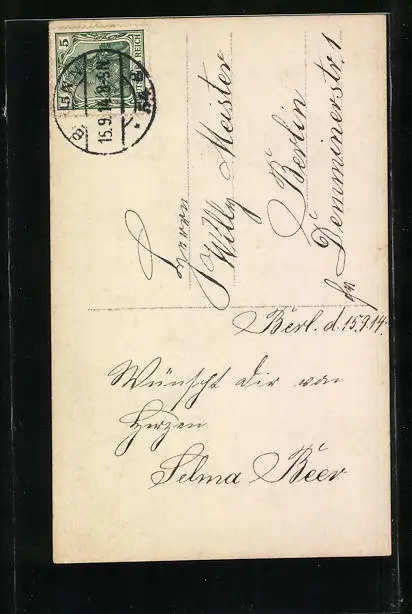 5
5
REICH
15.9.14.8-9N.
* 54 a
Herrn
Willy Meister
Berlin
Demminerstr. 1
Berl. d. 15.9.14.
Wünscht Dir von
Herzen
Selma Beer